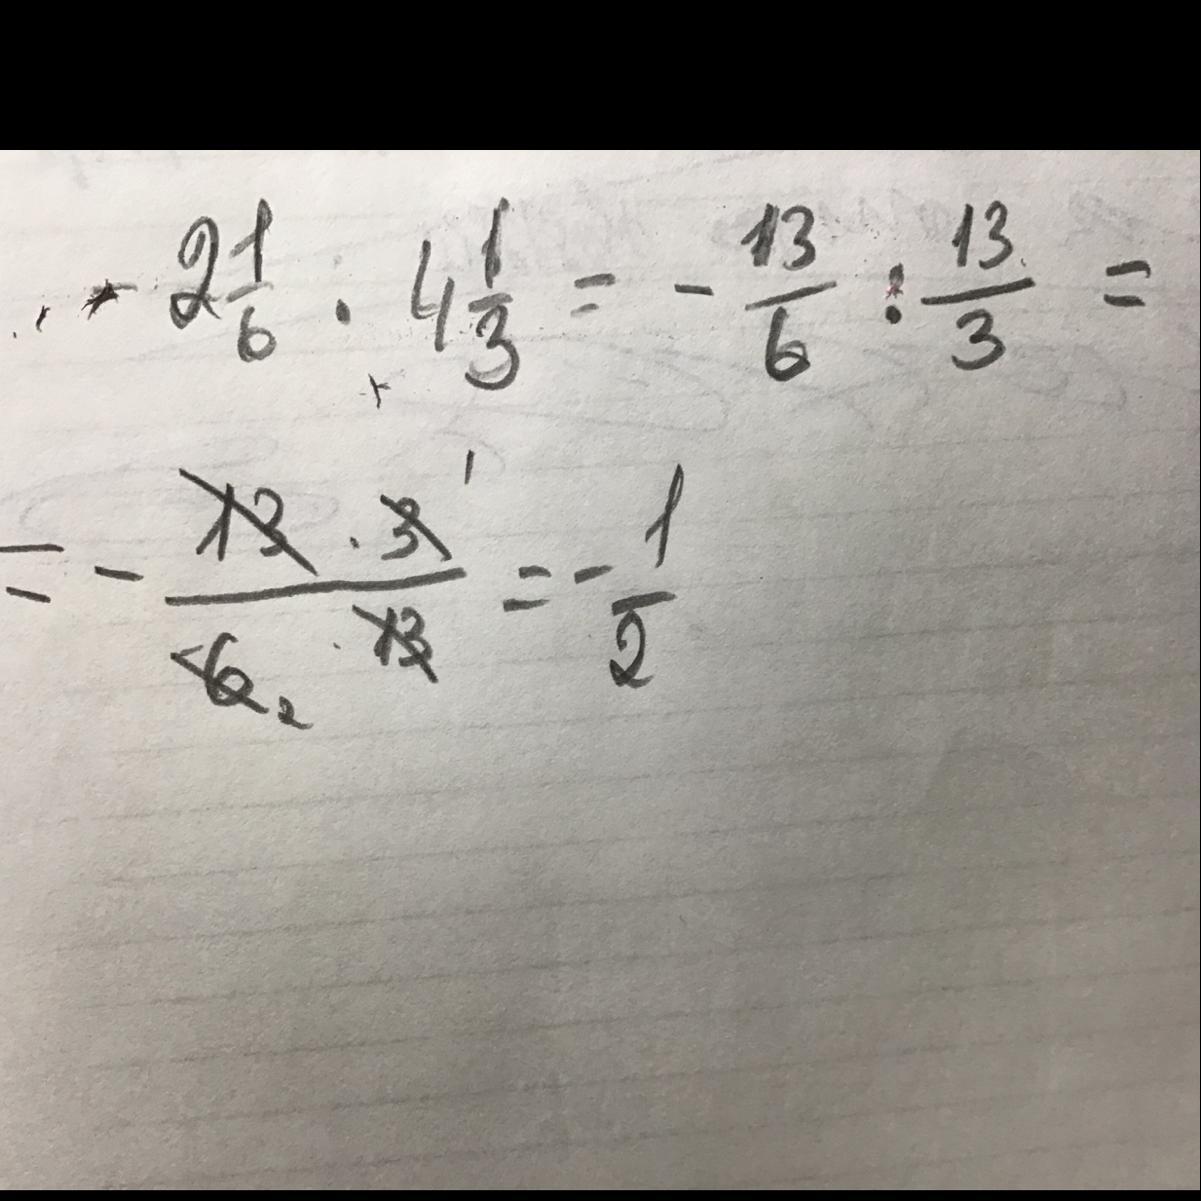 - 2 1/6 . 4 1/3 = - 13/6 : 13/3 =
= - 13 · 3 1 / 6 2 · 13 = - 1/2